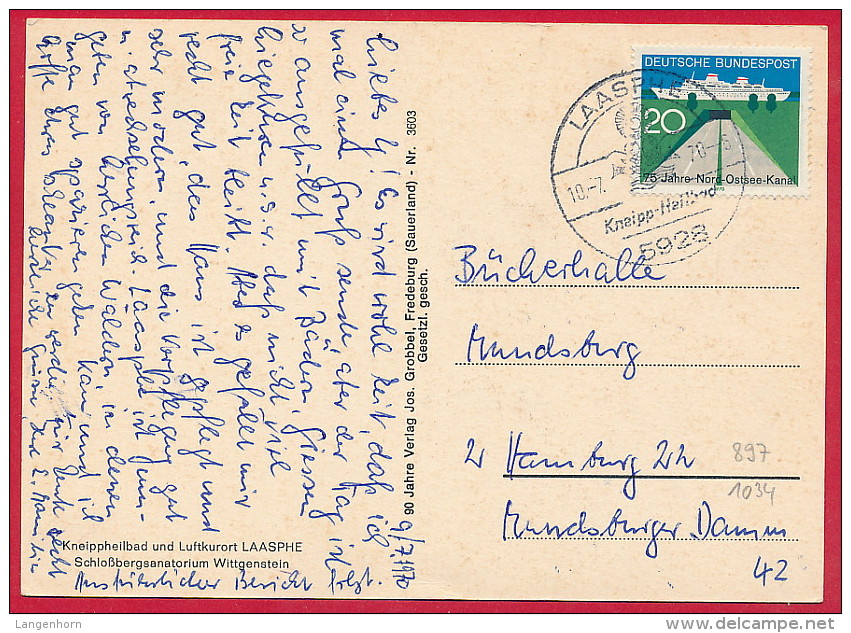 9/7 1970
Liebes G! Es wird wohl Zeit, daß ich
mal einen Gruß sende, aber der Tag ist
so ausgefüllt mit Bädern, Giessen
liegekuren u.s.w. daß nicht viel
freie Zeit bleibt. Aber es gefällt mir
recht gut, das Haus ist gepflegt und
sehr modern, und die Verpflegung gut
u. abwechslungsreich. Laasphe ist
geben von herrlichen Wäldern, in denen
man gut spazieren gehen kann und ich
hoffe
zu werden. Für heute recht
herzliche Grüsse
Ausführlicher Bericht folgt.
Kneippheilbad und Luftkurort LAASPHE
Schloßbergsanatorium Wittgenstein
90 Jahre Verlag Jos. Grobbel, Fredeburg (Sauerland) - Nr. 3603
Gesetzl. gesch.
DEUTSCHE BUNDESPOST
20
75 Jahre Nord-Ostsee-Kanal
LAASPHE
10.-7.
Kneipp-Heilbad
5928
Bücherhalle
Mundsburg
2 Hamburg 22
Mundsburger Damm
42
897
1034
Langenhorn
delcampe.net